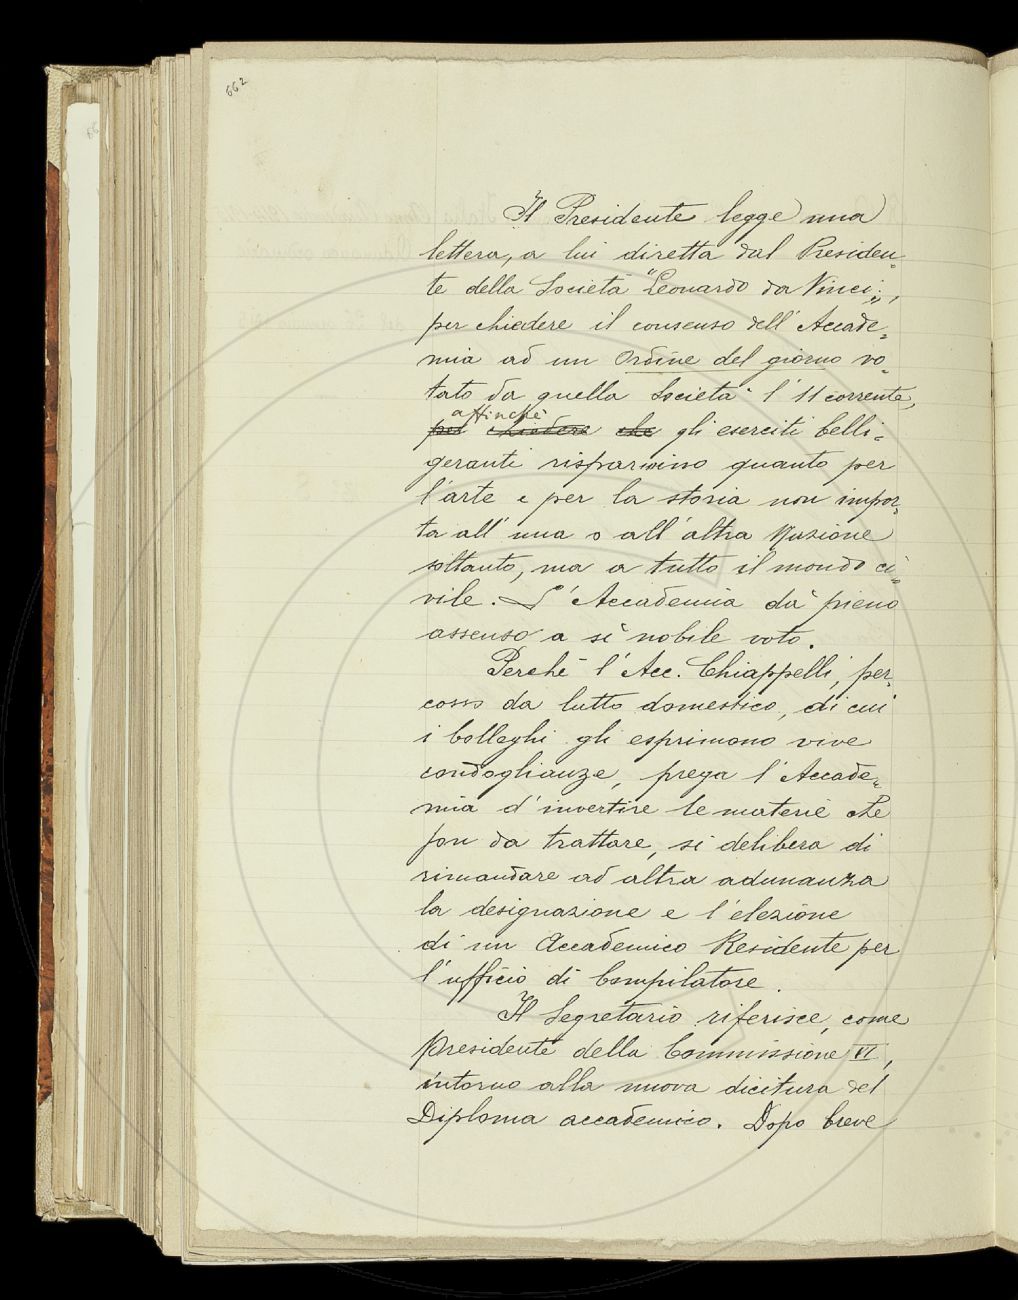 662
Il Presidente legge una
lettera, a lui diretta dal Presiden=
te della Società "Leonardo da Vinci",
per chiedere il consenso dell'Accade=
mia ad un Ordine del giorno vo=
tato da quella Società l'11 corrente,
affinchè
per chiedere che gli eserciti belli=
geranti risparmino quanto per
l'arte e per la storia non impor=
ta all'una o all'altra Nazione
soltanto, ma a tutto il mondo ci=
vile. L'Accademia dà pieno
assenso a sì nobile voto.
Perchè l'Acc. Chiappelli, per=
cosso da lutto domestico, di cui
i Colleghi gli esprimono vive
condoglianze, prega l'Accade=
mia d'invertire le materie che
son da trattare, si delibera di
rimandare ad altra adunanza
la designazione e l'elezione
di un Accademico Residente per
l'ufficio di Compilatore.
Il Segretario riferisce, come
Presidente della Commissione VI,
intorno alla nuova dicitura del
Diploma accademico. Dopo breve